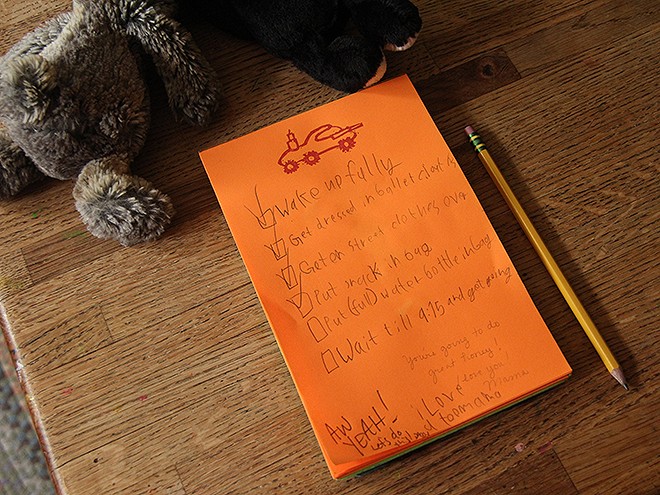 Wake up fully
Get dressed in ballet clothes
Get on street clothes over
Put snack in bag
Put (full) water bottle in bag
Wait till 9:15 and get going
You're going to do
great honey!
I love you,
Mama
AW
YEAH!
Let's do
I Love
toomama